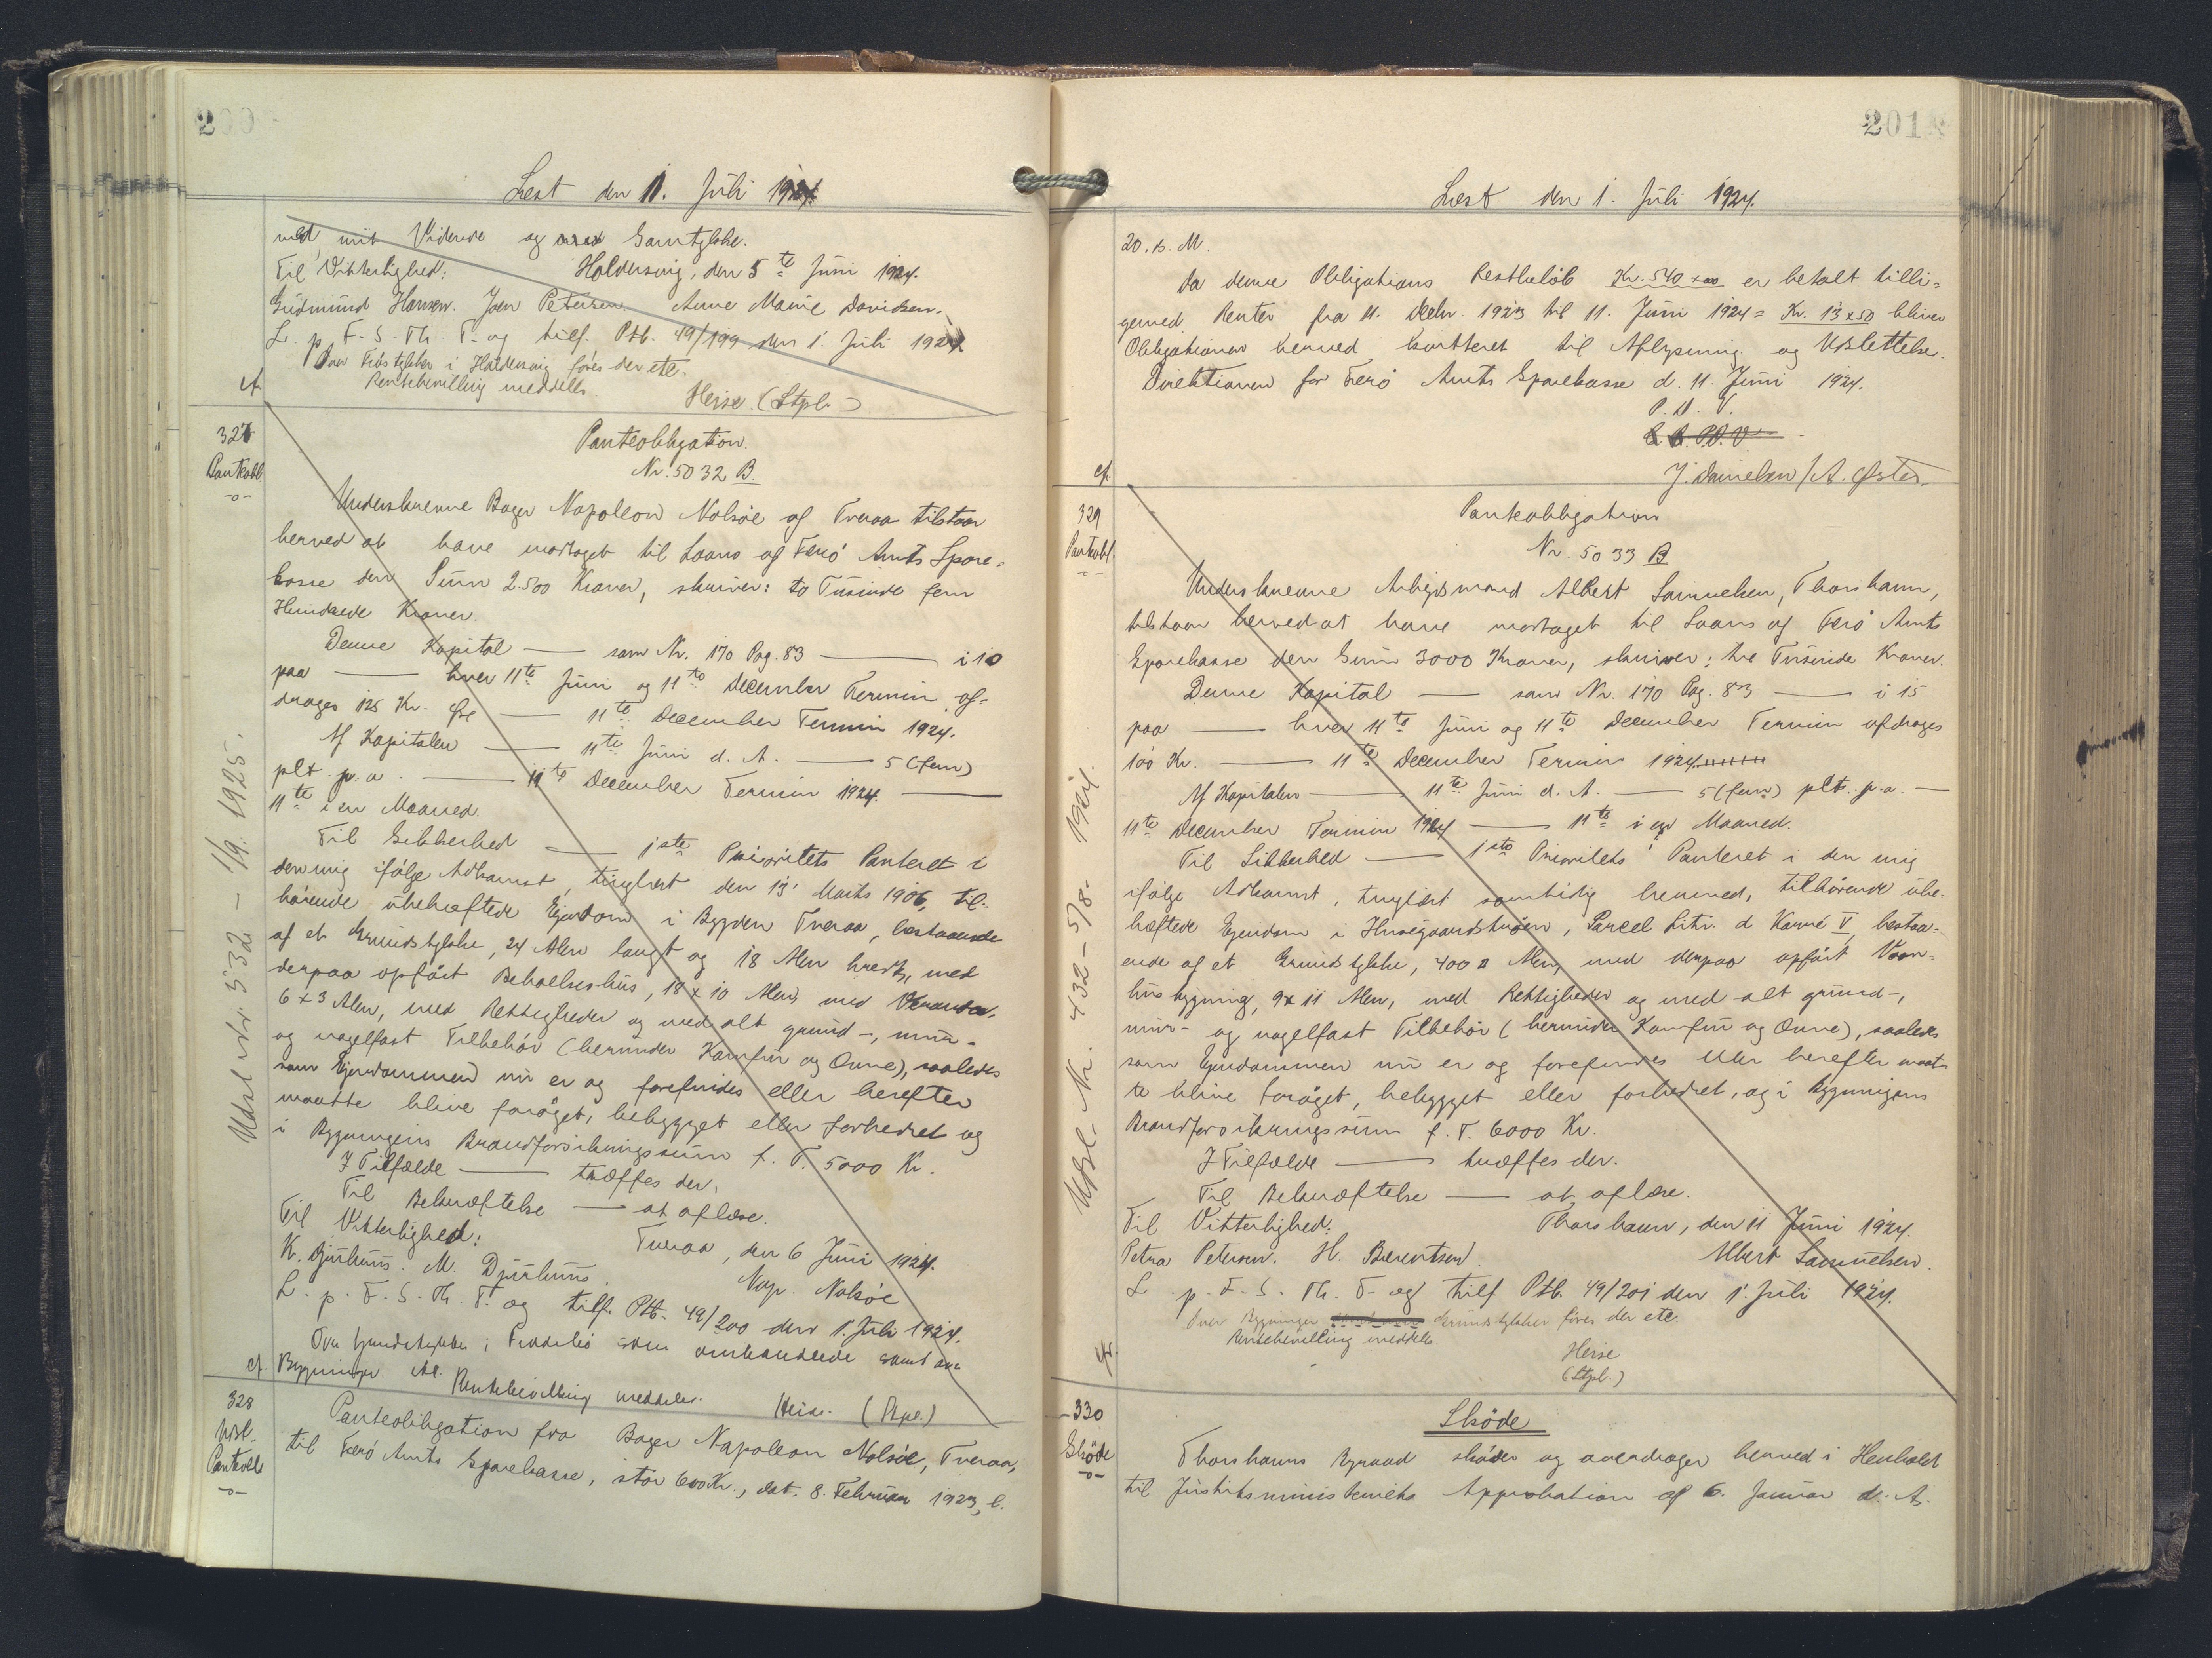 200
Læst den 1. Juli 1924.
med mit Vidende og Samtykke.
Til Vitterlighed: Haldersvig, den 5te Juni 1924.
Gudmund Hansen. Joen Petersen. Anne Marie Davidsen.
L. p. F. S. Th. T. og tilf. Ptb. 49/199 den 1. Juli 1924.
Over Fæststykker i Haldersvig føres der etc.
Rentebevilling meddeles.
Heise. (Stpl.)
cf.
327
Panteobl.
-o-
Panteobligation.
Nr. 5032 B.
Underskrevne Bager Napoleon Nolsøe af Tveraa tilstaar
herved at have modtaget til Laans af Færø Amts Spare=
kasse den Sum 2.500 Kroner, skriver: to Tusinde fem
Hundrede Kroner.
Denne Kapital — som Nr. 170 Pag. 83 — i 10
paa — hver 11te Juni og 11te December Termin af=
drages 125 Kr. Øre — 11te December Termin 1924.
Af Kapitalen — 11te Juni d. A. — 5 (fem)
pCt. p. a. — 11te December Termin 1924. —
11te i en Maaned.
Til Sikkerhed — 1ste Prioritets Panteret i
den mig ifølge Adkomst, tinglæst den 13' Marts 1906, til-
hørende ubehæftede Ejendom i Bygden Tveraa, bestaaende
af et Grundstykke, 24 Alen langt og 18 Alen bredt, med
derpaa opført Beboelseshus, 18 x 10 Alen, med Veranda,
6 x 3 Alen, med Rettigheder og med alt grund-, mur-
og nagelfast Tilbehør (herunder Komfur og Ovne), saaledes
som Ejendommen nu er og forefindes eller herefter
maatte blive forøget, bebygget eller forbedret og
i Bygningens Brandforsikringssum f. T. 5000 Kr.
I Tilfælde — træffes der.
Til Bekræftelse — at aflæse.
Til Vitterlighed: Tveraa, den 6 Juni 1924.
K. Djurhuus. M. Djurhuus. Nap. Nolsøe
L. p. F. S. Th. T. og tilf. Ptb. 49/200 den 1. Juli 1924.
Over Grundstykke i Frodebø som omhandlede samt om
cf. Bygninger Al. Rentebevilling meddeles. Heise. (Stpl.)
Udsl. Nr. 532 - 1/9. 1925.
328
Udsl.
Panteobl.
-o-
Panteobligation fra Bager Napoleon Nolsøe, Tveraa,
til Færø Amts Sparekasse, stor 600 Kr., dat. 8. Februar 1923, l.
201
Læst den 1. Juli 1924.
20. s. M.
Da denne Obligations Restbeløb Kr. 540 x 00 er betalt tilli=
gemed Renter fra 11. Decbr. 1923 til 11. Juni 1924 = Kr. 13 x 50 bliver
Obligationen herved kvitteret til Aflysning og Udslettelse.
Direktionen for Færø Amts Sparekasse d. 11. Juni 1924.
P. D. V.
P. D. V.
J. Danielsen / A. Øster.
cf.
329
Panteobl.
Panteobligation
Nr. 5033 B
Underskrevne Arbejdsmand Albert Samuelsen, Thorshavn,
tilstaar herved at have modtaget til Laans af Færø Amts
Sparekasse den Sum 3000 Kroner, skriver: tre Tusinde Kroner.
Denne Kapital — som Nr. 170 Pag. 83 — i 15
paa — hver 11te Juni og 11te December Termin afdrages
100 Kr. — 11te December Termin 1924.
Af Kapitalen — 11te Juni d. A. — 5 (fem) pCt. p. a. —
11te December Termin 1924 — 11te i en Maaned.
Til Sikkerhed — 1ste Prioritets Panteret i den mig
ifølge Adkomst, tinglæst samtidig hermed, tilhørende ube-
hæftede Ejendom i Husegaardstrøen, Parcel Litr. d Karré V, bestaa=
ende af et Grundstykke, 400 □ Alen, med derpaa opført Vaan-
husbygning, 9 x 11 Alen, med Rettigheder og med alt grund-,
mur- og nagelfast Tilbehør (herunder Komfur og Ovne), saaledes
som Ejendommen nu er og forefindes eller herefter maat-
te blive forøget, bebygget eller forbedret, og i Bygningens
Brandforsikringssum f. T. 6000 Kr.
I Tilfælde — træffes der.
Til Bekræftelse — at aflæse.
Til Vitterlighed: Thorshavn, den 11 Juni 1924.
Petra Petersen. H. Berentsen. Albert Samuelsen.
L. p. F. S. Th. T. og tilf Ptb. 49/201 den 1. Juli 1924.
Over Bygninger Grundstykker føres der etc.
Rentebevilling meddeles
Heise
(Stpl.)
cf.
Udsl. Nr. 432 - 5/8. 1924.
330
Skøde
-o-
Skøde
Thorshavns Byraad skøder og overdrager herved i Henhold
til Justitsministeriets Approbation af 6. Januar d. A.